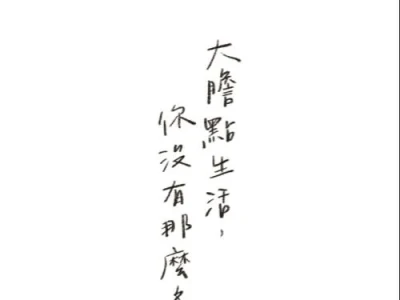 大膽點生活，
你沒有那麼